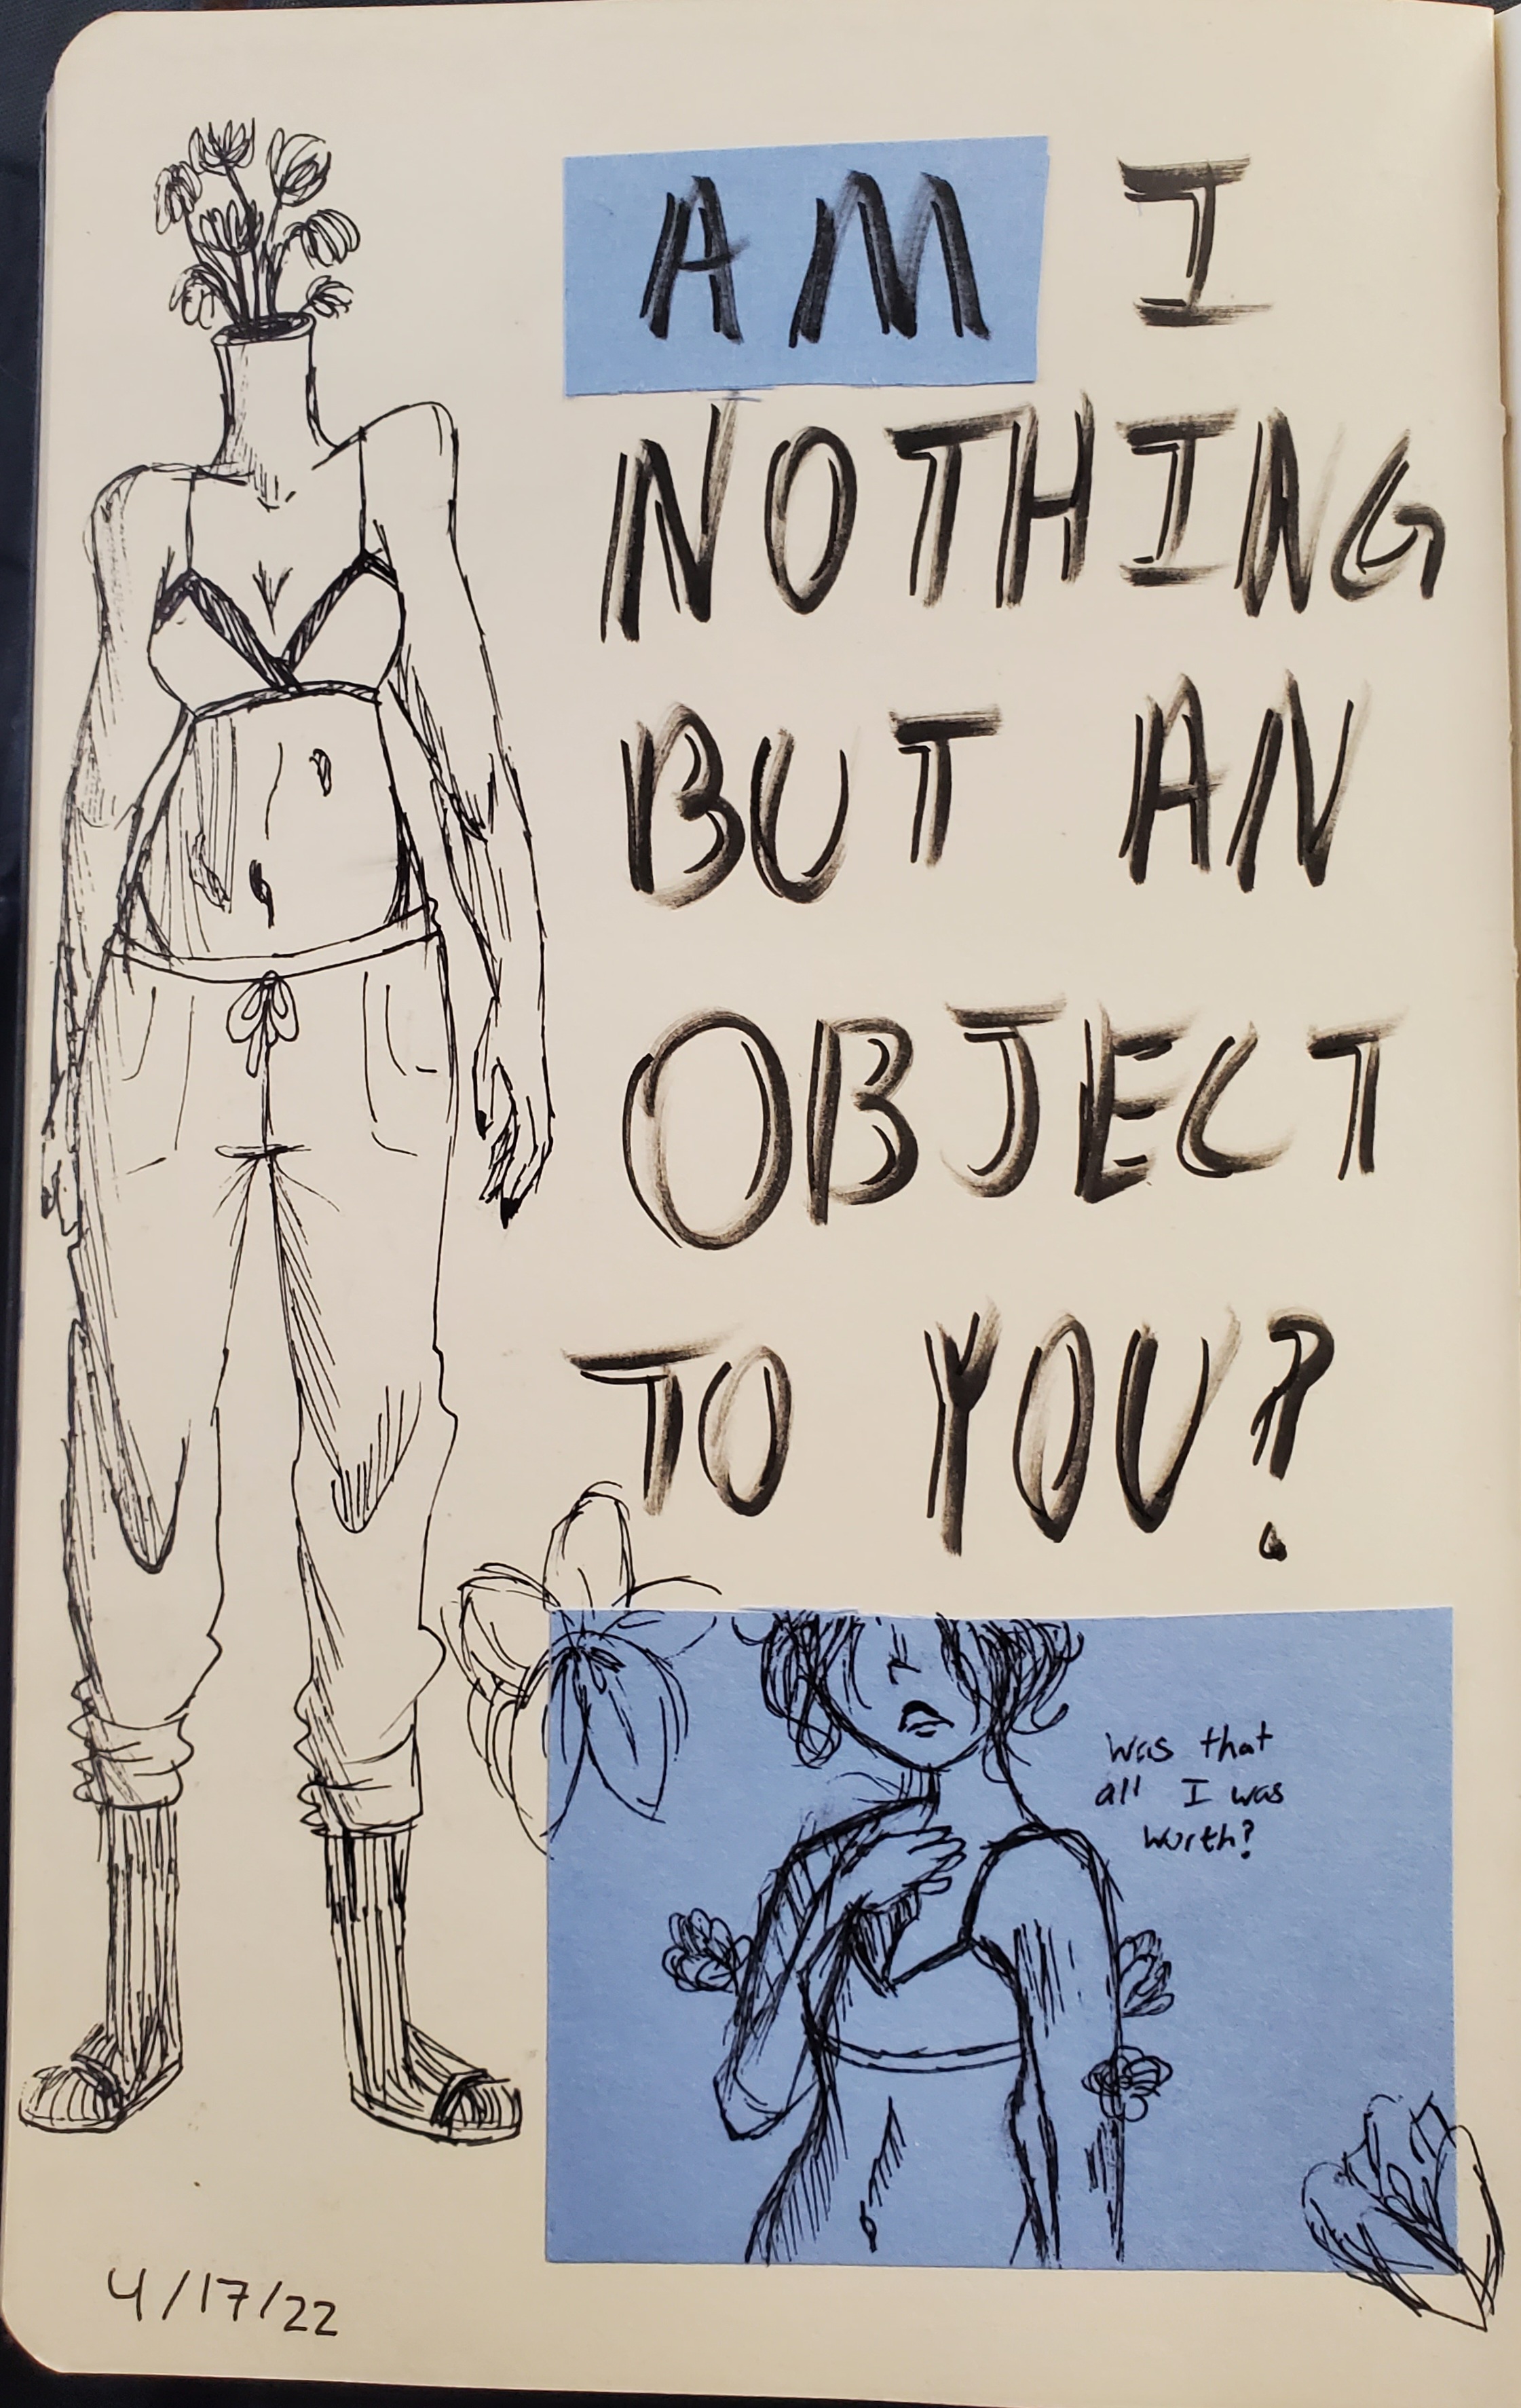 AM I
NOTHING
BUT AN
OBJECT
TO YOU?
Was that
all I was
worth?
4/17/22